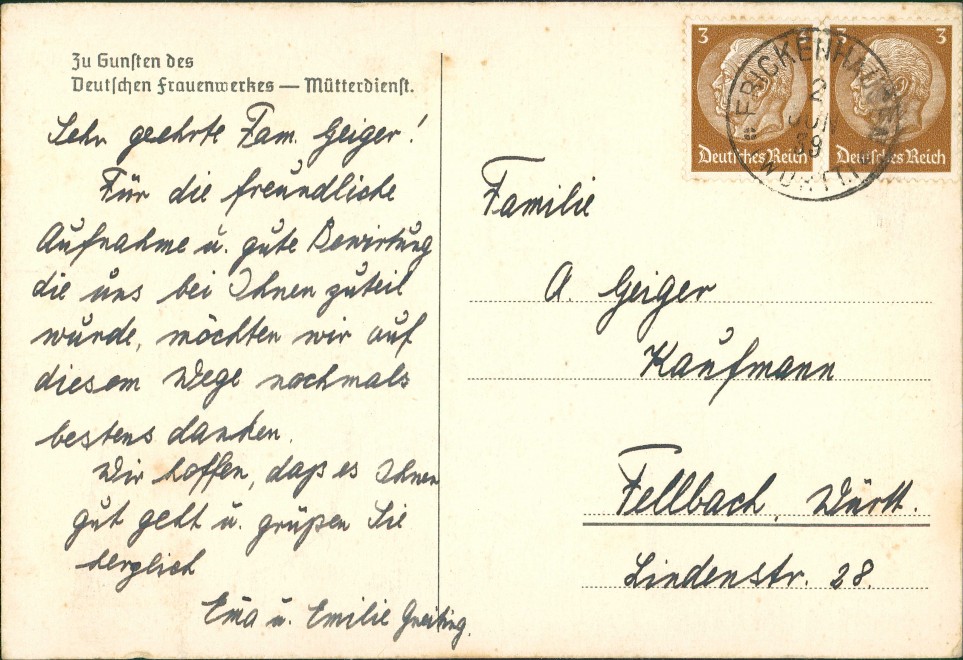 Zu Gunsten des
Deutschen Frauenwerkes — Mütterdienst.
Sehr geehrte Fam. Geiger!
Für die freundliche
Aufnahme u. gute Bewirtung
die uns bei Ihnen zuteil
wurde, möchten wir auf
diesem Wege nochmals
bestens danken.
Wir hoffen, daß es Ihnen
gut geht u. grüßen Sie
herzlich
Ema u. Emilie Greiling.
3
3
Deutsches Reich
Deutsches Reich
FRICKENHAUSEN
2
JUN
39
(WÜRTT.)
Familie
A. Geiger
Kaufmann
Fellbach, Württ.
Lindenstr. 28.